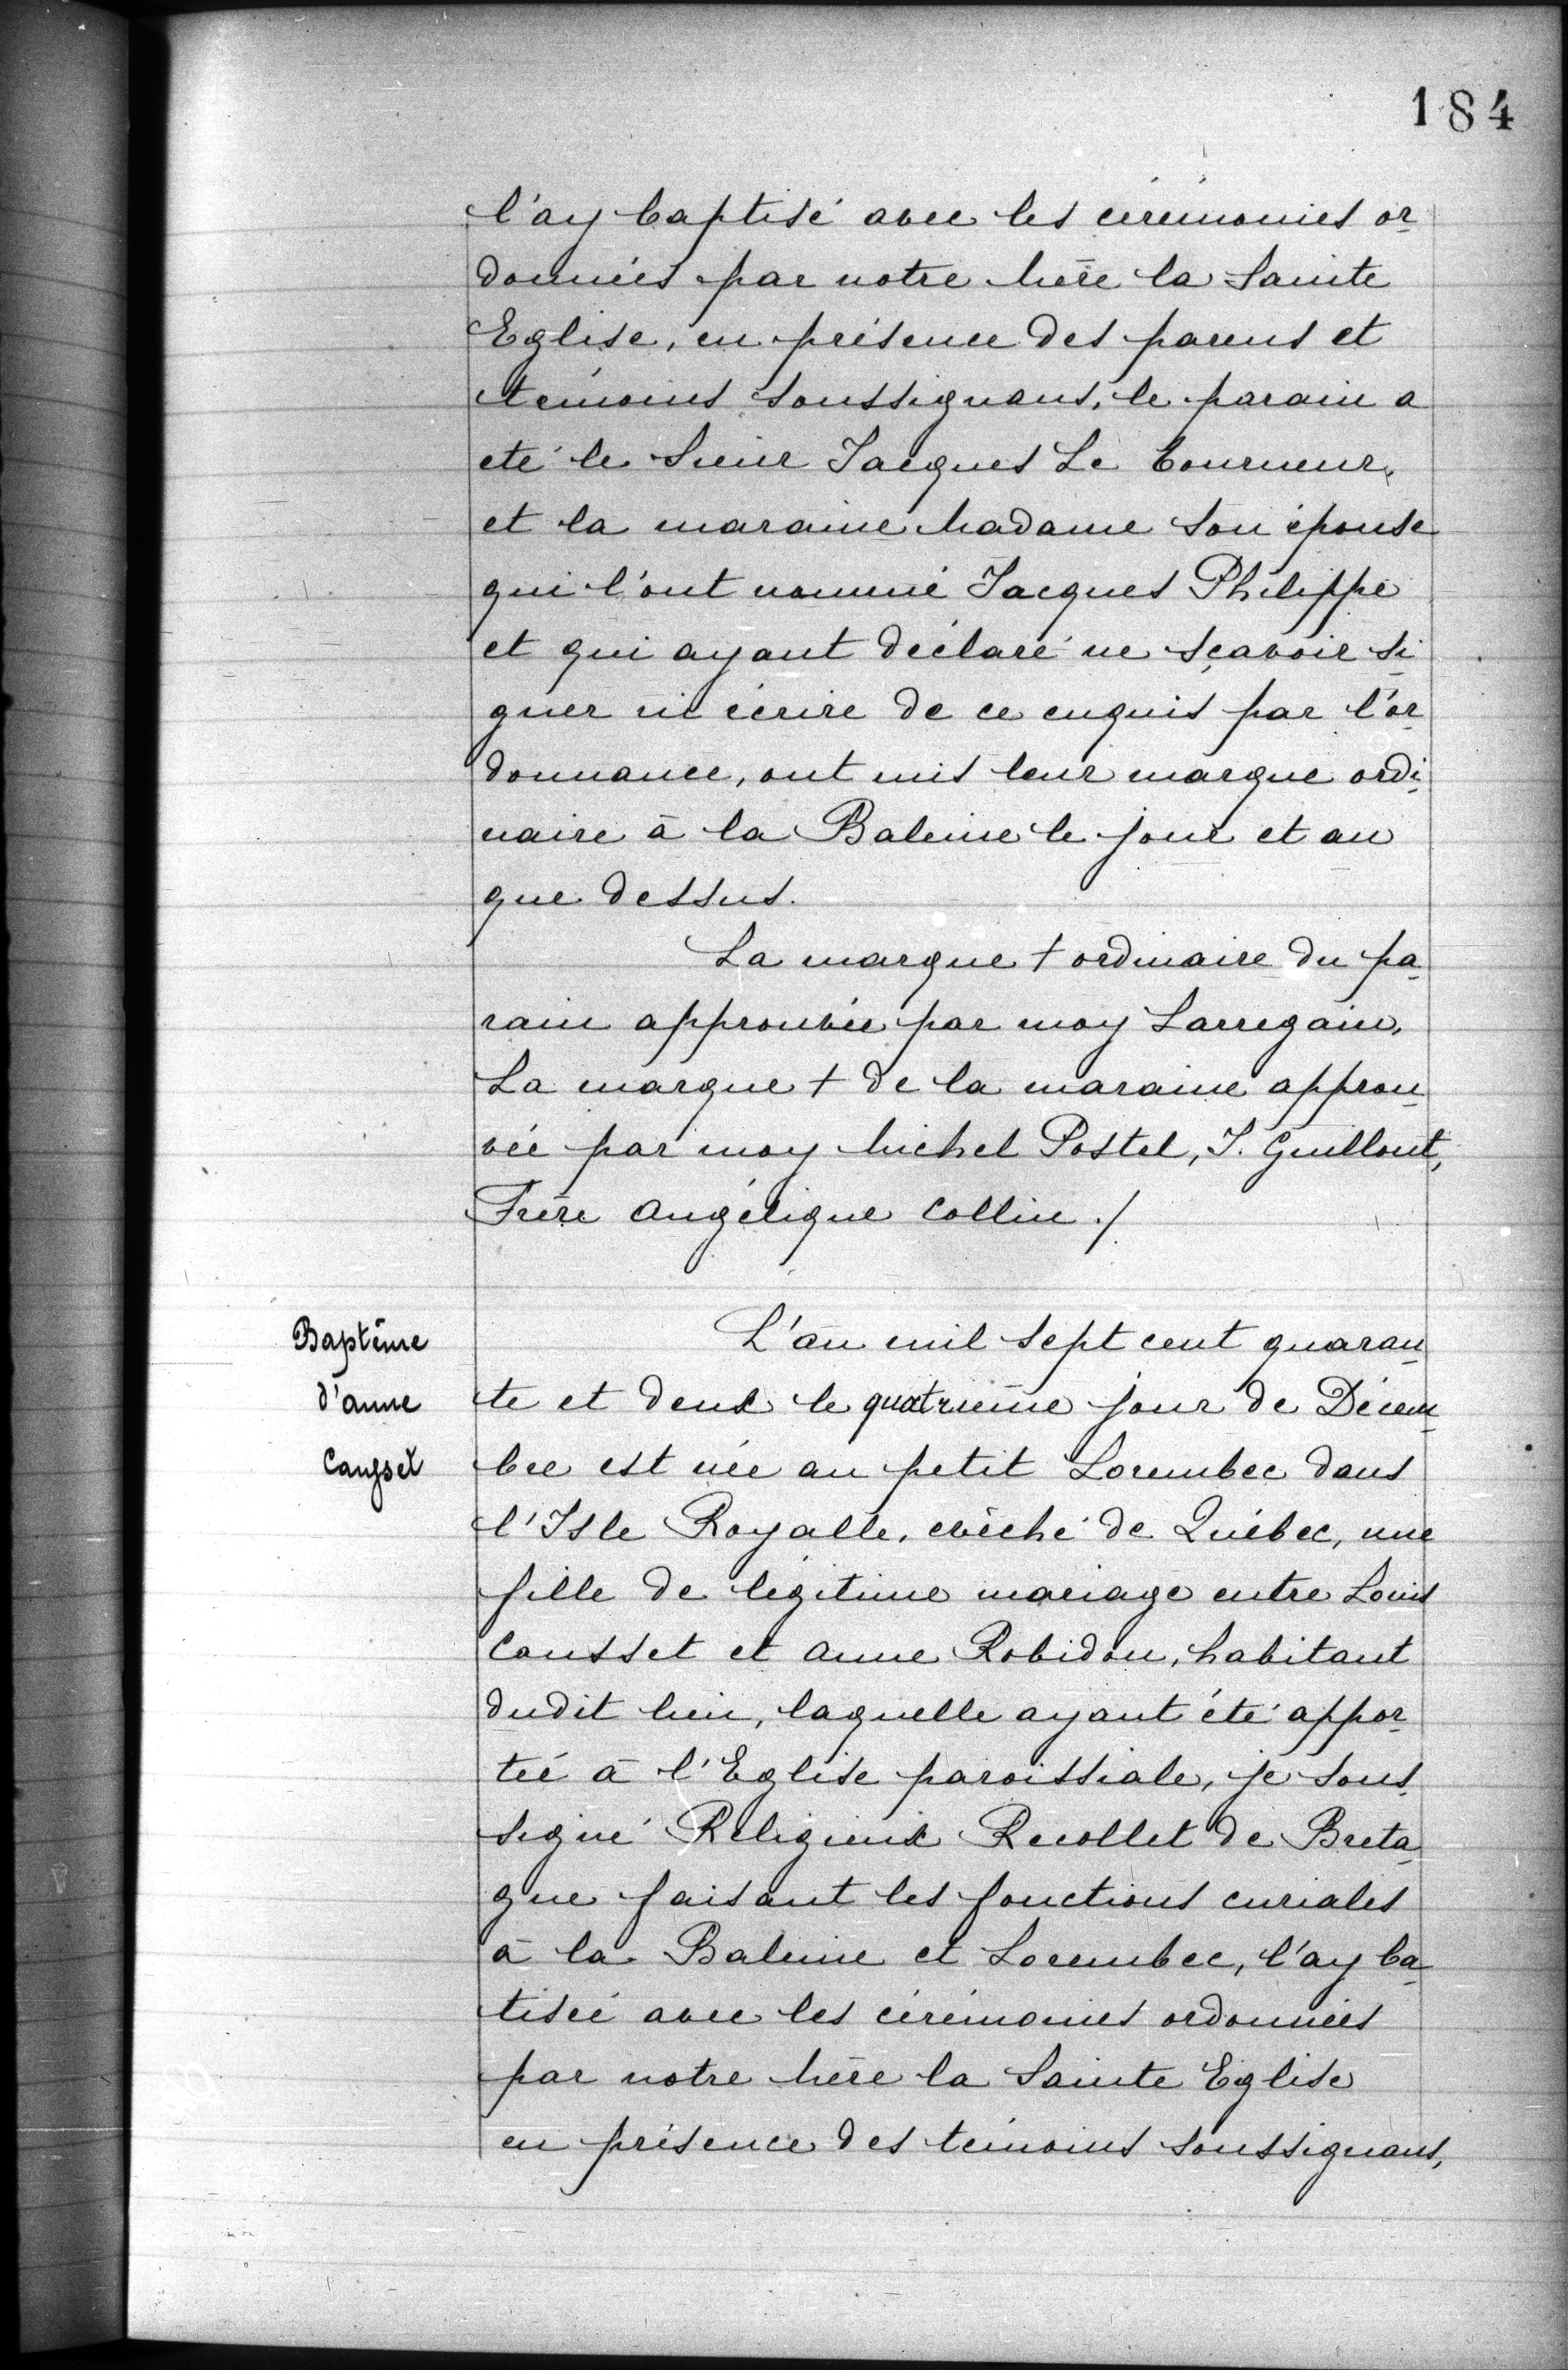 184
l'ay baptisé avec les cérémonies or
données par notre Mère la Sainte
Eglise, en présence des parens et
témoins soussignans, le parain a
eté le Sieur Jacques Le Tourneur,
et la maraine Madame son épouse
qui l'ont nommé Jacques Philippe
et qui ayant déclaré ne sçavoir si
gner ni écrire de ce enquis par l'or
donnance, ont mis leur marque ordi
naire à la Baleine le jour et an
que dessus.
La marque + ordinaire du pa
rain approuvée par moy Larregain,
La marque + de la maraine approu
vée par moy Michel Postel, J. Guillout,
Frère Angélique Collin ./
Baptême
d'anne
Caupset
L'an mil sept cent quaran
te et deux le quatrieme jour de Décem
bre est née au petit Lorembec dans
l'Isle Royalle, evêché de Québec, une
fille de légitime mariage entre Louis
Causset et Anne Robidou, habitant
dudit lieu, laquelle ayant été appor
tée à l'Eglise paroissiale, je sous
signé Religieux Recollet de Breta
gne faisant les fonctions curiales
à la Baleine et Lorembec, l'ay ba
tisée avec les cérémonies ordonnées
par notre Mère la Sainte Eglise
en présence des témoins soussignans,